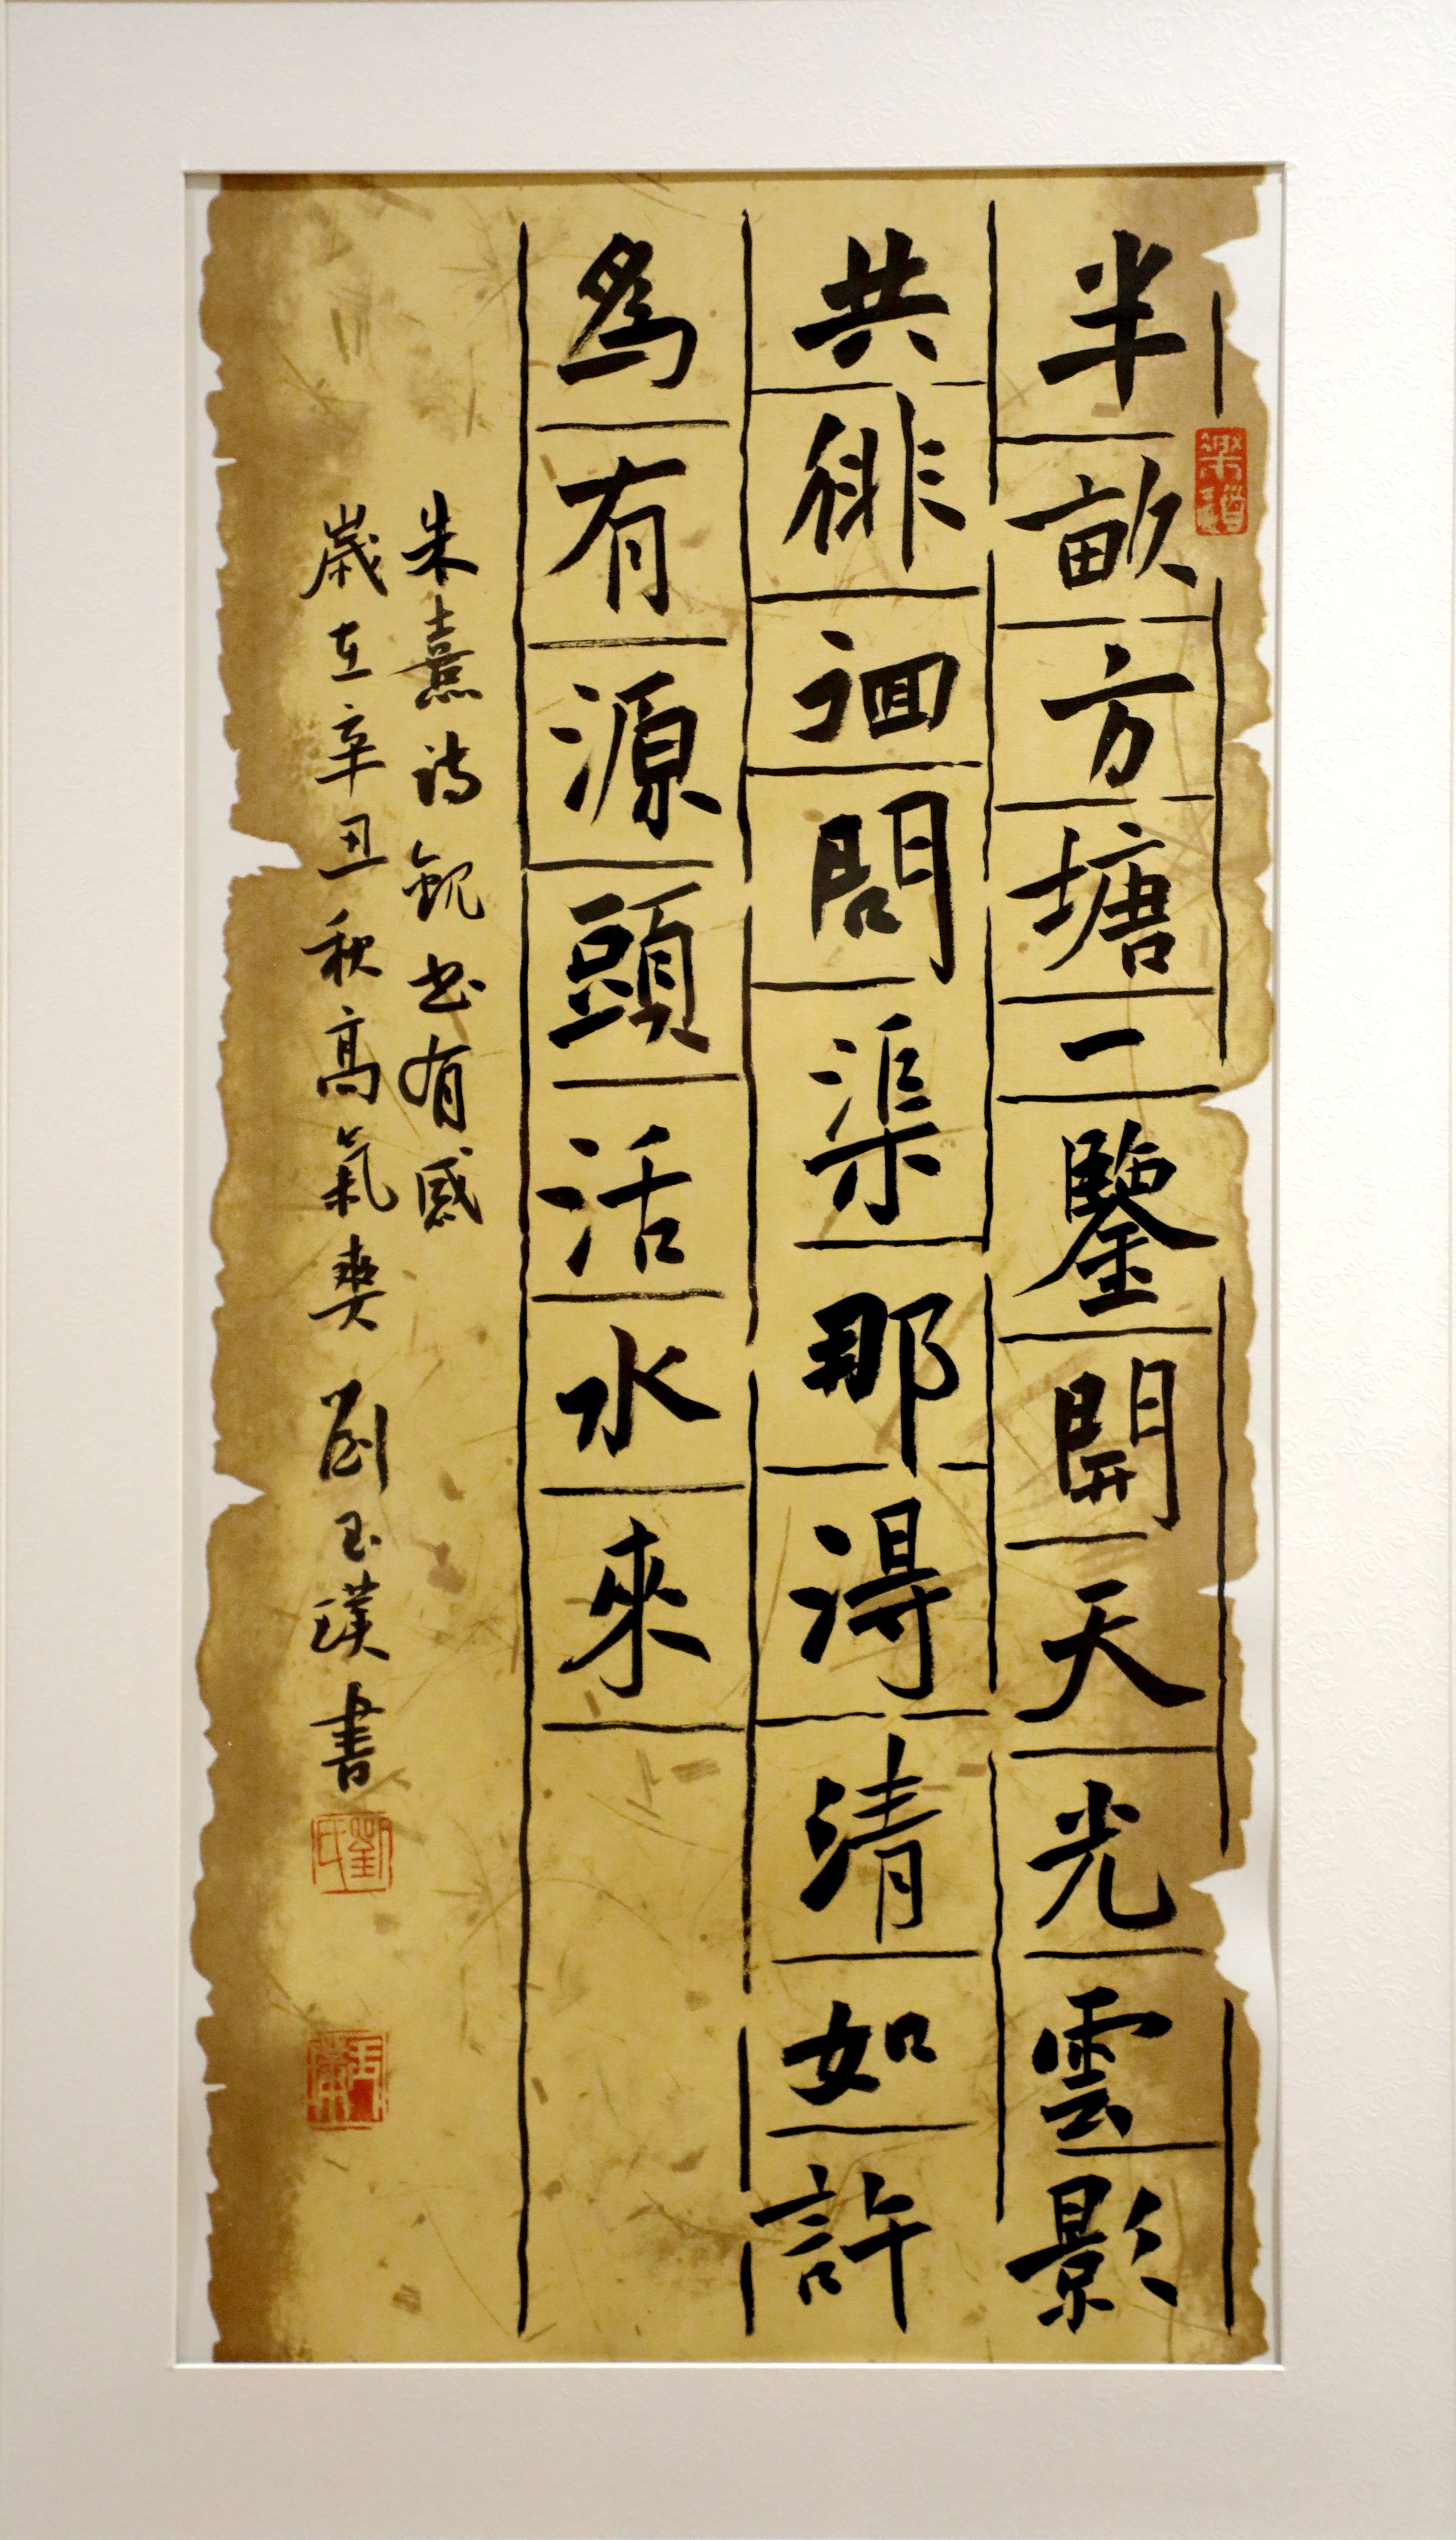 半畝方塘一鑒開天光雲影
共徘徊問渠那得清如許
為有源頭活水來
朱熹詩觀书有感
歲在辛丑秋高氣爽 劉玉書
劉氏